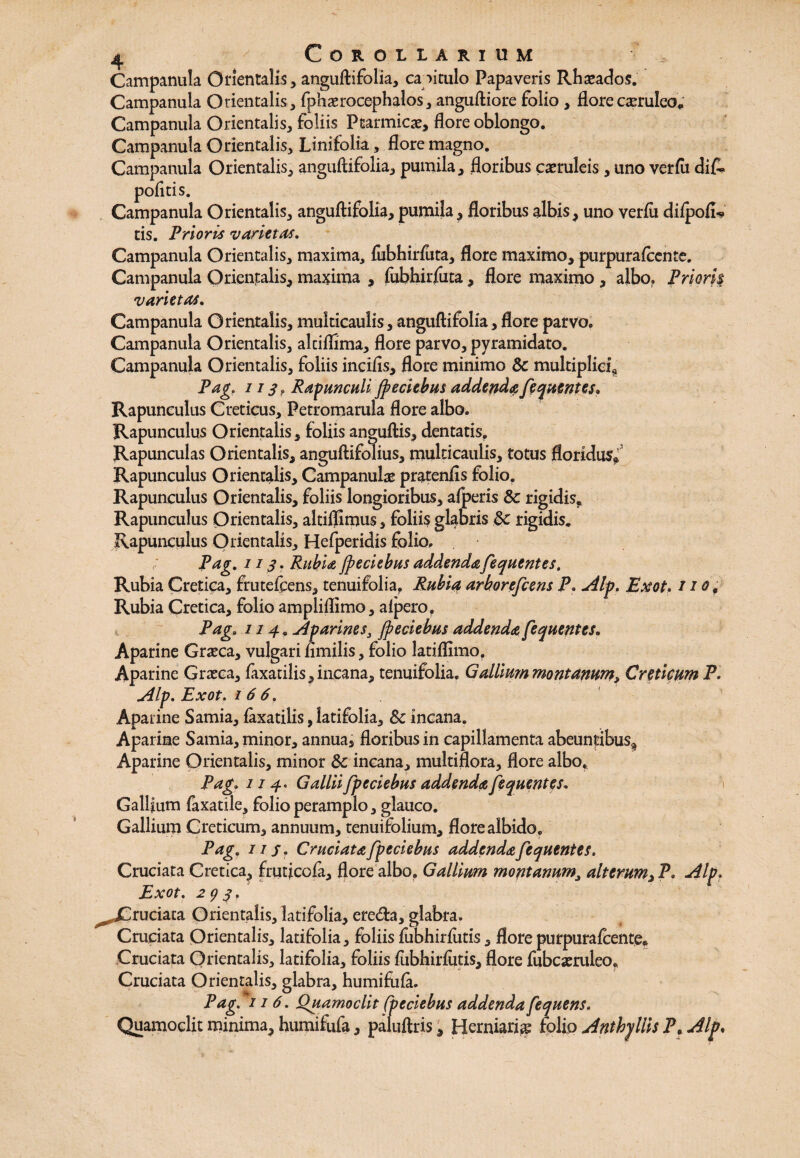 4 COROLLARIUM
Campanula Orientalis, anguſtifolia, capitulo Papaveris Rhæados.
Campanula Orientalis, ſphærocephalos, anguſtiore folio, flore cæruleo.
Campanula Orientalis, foliis Ptarmicæ, flore oblongo.
Campanula Orientalis, Linifolia, flore magno.
Campanula Orientalis, anguſtifolia, pumila, floribus cæruleis, uno verſu diſ-
poſitis.
Campanula Orientalis, anguſtifolia, pumila, floribus albis, uno verſu diſpoſi-
tis. Prioris varietas.
Campanula Orientalis, maxima, ſubhirſuta, flore maximo, purpuraſcente.
Campanula Orientalis, maxima, ſubhirſuta, flore maximo, albo. Prioris
varietas.
Campanula Orientalis, multicaulis, anguſtifolia, flore parvo.
Campanula Orientalis, altiſſima, flore parvo, pyramidato.
Campanula Orientalis, foliis inciſis, flore minimo & multiplici.
Pag. 113. Rapunculi ſpeciebus addendæ ſequentes.
Rapunculus Creticus, Petromarula flore albo.
Rapunculus Orientalis, foliis anguſtis, dentatis.
Rapunculas Orientalis, anguſtifolius, multicaulis, totus floridus.
Rapunculus Orientalis, Campanulæ pratenſis folio.
Rapunculus Orientalis, foliis longioribus, aſperis & rigidis.
Rapunculus Orientalis, altiſſimus, foliis glabris & rigidis.
Rapunculus Orientalis, Heſperidis folio.
Pag. 113. Rubiæ ſpeciebus addendæ ſequentes.
Rubia Cretica, fruteſcens, tenuifolia. Rubia arboreſcens P. Alp. Exot. 110.
Rubia Cretica, folio ampliſſimo, aſpero.
Pag. 114. Aparines, ſpeciebus addendæ ſequentes.
Aparine Græca, vulgari ſimilis, folio latiſſimo.
Aparine Græca, ſaxatilis, incana, tenuifolia. Gallium montanum, Creticum P.
Alp. Exot. 166.
Aparine Samia, ſaxatilis, latifolia, & incana.
Aparine Samia, minor, annua, floribus in capillamenta abeuntibus.
Aparine Orientalis, minor & incana, multiflora, flore albo.
Pag. 114. Gallii ſpeciebus addendæ ſequentes.
Gallium ſaxatile, folio peramplo, glauco.
Gallium Creticum, annuum, tenuifolium, flore albido.
Pag. 115. Cruciatæ ſpeciebus addendæ ſequentes.
Cruciata Cretica, fruticoſa, flore albo. Gallium montanum, alterum, P. Alp.
Exot. 293.
Cruciata Orientalis, latifolia, erecta, glabra.
Cruciata Orientalis, latifolia, foliis ſubhirſutis, flore purpuraſcente.
Cruciata Orientalis, latifolia, foliis ſubhirſutis, flore ſubcæruleo.
Cruciata Orientalis, glabra, humifuſa.
Pag. 116. Quamoclit ſpeciebus addenda ſequens.
Quamoclit minima, humifuſa, paluſtris, Herniariæ folio Anthyllis P. Alp.